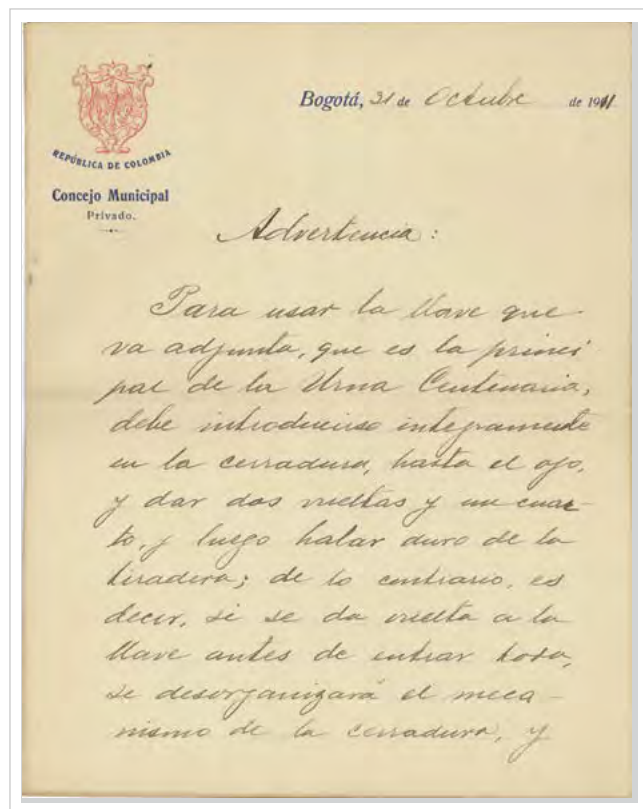 Bogotá, 31 de Octubre de 1911
REPÚBLICA DE COLOMBIA
Concejo Municipal
Privado.
Advertencia:
Para usar la llave que
va adjunta, que es la princi
pal de la Urna Centenaria,
debe introducirse integramente
en la cerradura, hasta el ojo,
y dar dos vueltas y un cuar-
to, y luego halar duro de la
tiradera; de lo contrario, es
decir, si se da vuelta a la
llave antes de entrar toda,
se desorganizará el meca-
nismo de la cerradura, y